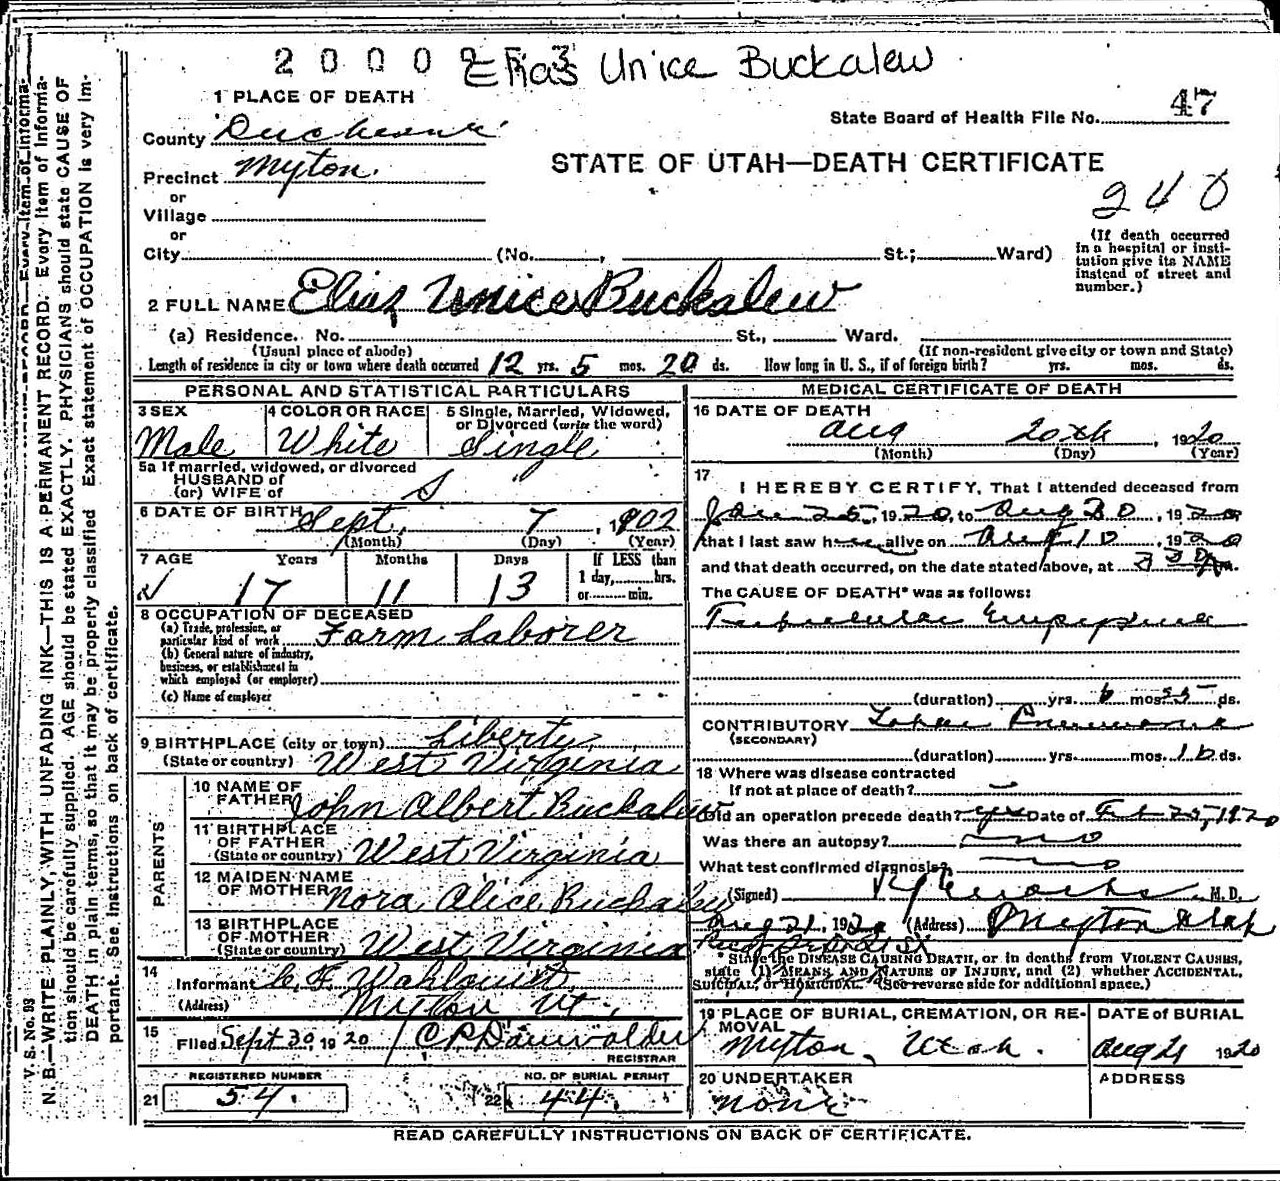 2 0 0 0 2 5 3
Elias Unice Buckalew
1 PLACE OF DEATH
State Board of Health File No. 47
County Duchesne
STATE OF UTAH—DEATH CERTIFICATE
Precinct Myton.
240
or
Village
or
City (No. , St.; Ward)
(If death occurred
in a hospital or insti-
tution give its NAME
instead of street and
number.)
2 FULL NAME Elias Unice Buckalew
(a) Residence. No. St., Ward.
(Usual place of abode) (If non-resident give city or town and State)
Length of residence in city or town where death occurred 12 yrs. 5 mos. 20 ds. How long in U. S., if of foreign birth? yrs. mos. ds.
PERSONAL AND STATISTICAL PARTICULARS
3 SEX 4 COLOR OR RACE 5 Single, Married, Widowed,
or Divorced (write the word)
Male White Single
5a If married, widowed, or divorced
HUSBAND of
(or) WIFE of S
6 DATE OF BIRTH Sept. 7, 1902
(Month) (Day) (Year)
7 AGE Years Months Days If LESS than
1 day, hrs.
or min.
17 11 13
8 OCCUPATION OF DECEASED
(a) Trade, profession, or
particular kind of work Farm Laborer
(b) General nature of industry,
business, or establishment in
which employed (or employer)
(c) Name of employer
9 BIRTHPLACE (city or town) Liberty,
(State or country) West Virginia
PARENTS
10 NAME OF
FATHER John Albert Buckalew
11 BIRTHPLACE
OF FATHER
(State or country) West Virginia
12 MAIDEN NAME
OF MOTHER Nora Alice Buckalew
13 BIRTHPLACE
OF MOTHER
(State or country) West Virginia
14
Informant C. F. Wahlquist
(Address) Myton Ut.
15
Filed Sept 30, 1920 REGISTRAR
REGISTERED NUMBER NO. OF BURIAL PERMIT
21 54. 22 44.
MEDICAL CERTIFICATE OF DEATH
16 DATE OF DEATH
Aug 20th, 1920
(Month) (Day) (Year)
17
I HEREBY CERTIFY, That I attended deceased from
Jan 25, 1920, to Aug 20, 1920
that I last saw h alive on Aug 10, 1920
and that death occurred, on the date stated above, at m.
The CAUSE OF DEATH* was as follows:
Tubercular Empyema
(duration) yrs. 6 mos. 25 ds.
CONTRIBUTORY Lobar Pneumonia
(SECONDARY)
(duration) yrs. mos. 10 ds.
18 Where was disease contracted
If not at place of death?
Did an operation precede death? yes Date of Feb 25, 1920
Was there an autopsy? no
What test confirmed diagnosis? no
(Signed) M. D.
Aug 21, 1920 (Address) Myton Utah
*State the DISEASE CAUSING DEATH, or in deaths from VIOLENT CAUSES,
state (1) MEANS AND NATURE OF INJURY, and (2) whether ACCIDENTAL,
SUICIDAL, or HOMICIDAL. (See reverse side for additional space.)
19 PLACE OF BURIAL, CREMATION, OR RE-
MOVAL DATE of BURIAL
Myton, Utah. Aug 21 1920
20 UNDERTAKER ADDRESS
none
READ CAREFULLY INSTRUCTIONS ON BACK OF CERTIFICATE.
V. S. No. 98
N. B.—WRITE PLAINLY, WITH UNFADING INK—THIS IS A PERMANENT RECORD. Every item of informa-
tion should be carefully supplied. AGE should be stated EXACTLY. PHYSICIANS should state CAUSE OF
DEATH in plain terms, so that it may be properly classified. Exact statement of OCCUPATION is very im-
portant. See instructions on back of certificate.